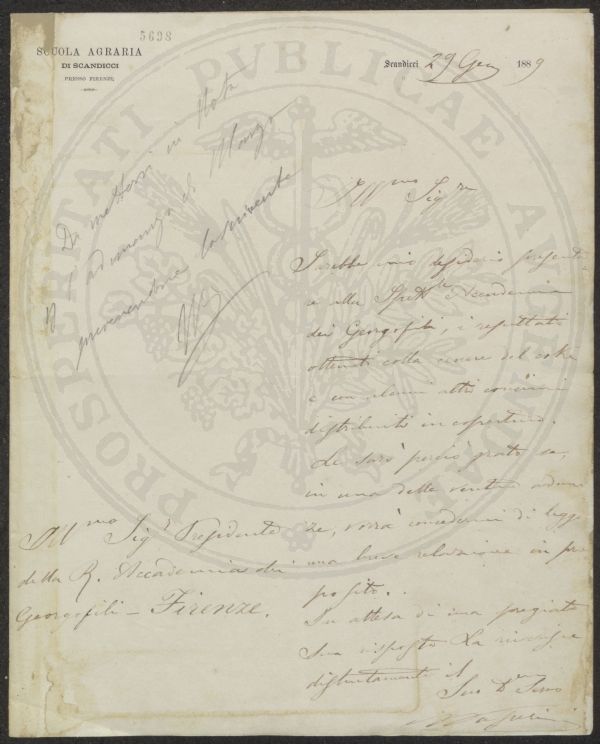 5698
SCUOLA AGRARIA
DI SCANDICCI
PRESSO FIRENZE
Scandicci 29 Gen 1889
Da mettersi in Nota
per l'adunanza di Marzo
prevenendone lo scrivente
Ill.mo Sig.re
Sarebbe mio desiderio presenta-
re alla Spett.le Accademia
dei Georgofili, i resultati
ottenuti colla cenere del coke
e con alcuni altri concimi
distribuiti in copertura.
Le sarò perciò grato se,
in una delle venture adunan-
ze, vorrà concedermi di legge
una breve relazione in pro
posito.
In attesa di una pregiata
Sua risposta La riverisce
distintamente il
Suo D.mo Servo
Ill.mo Sig.r Presidente
della R. Accademia dei
Georgofili - Firenze.
PROSPERITATI PVBLICAE AVGENDAE